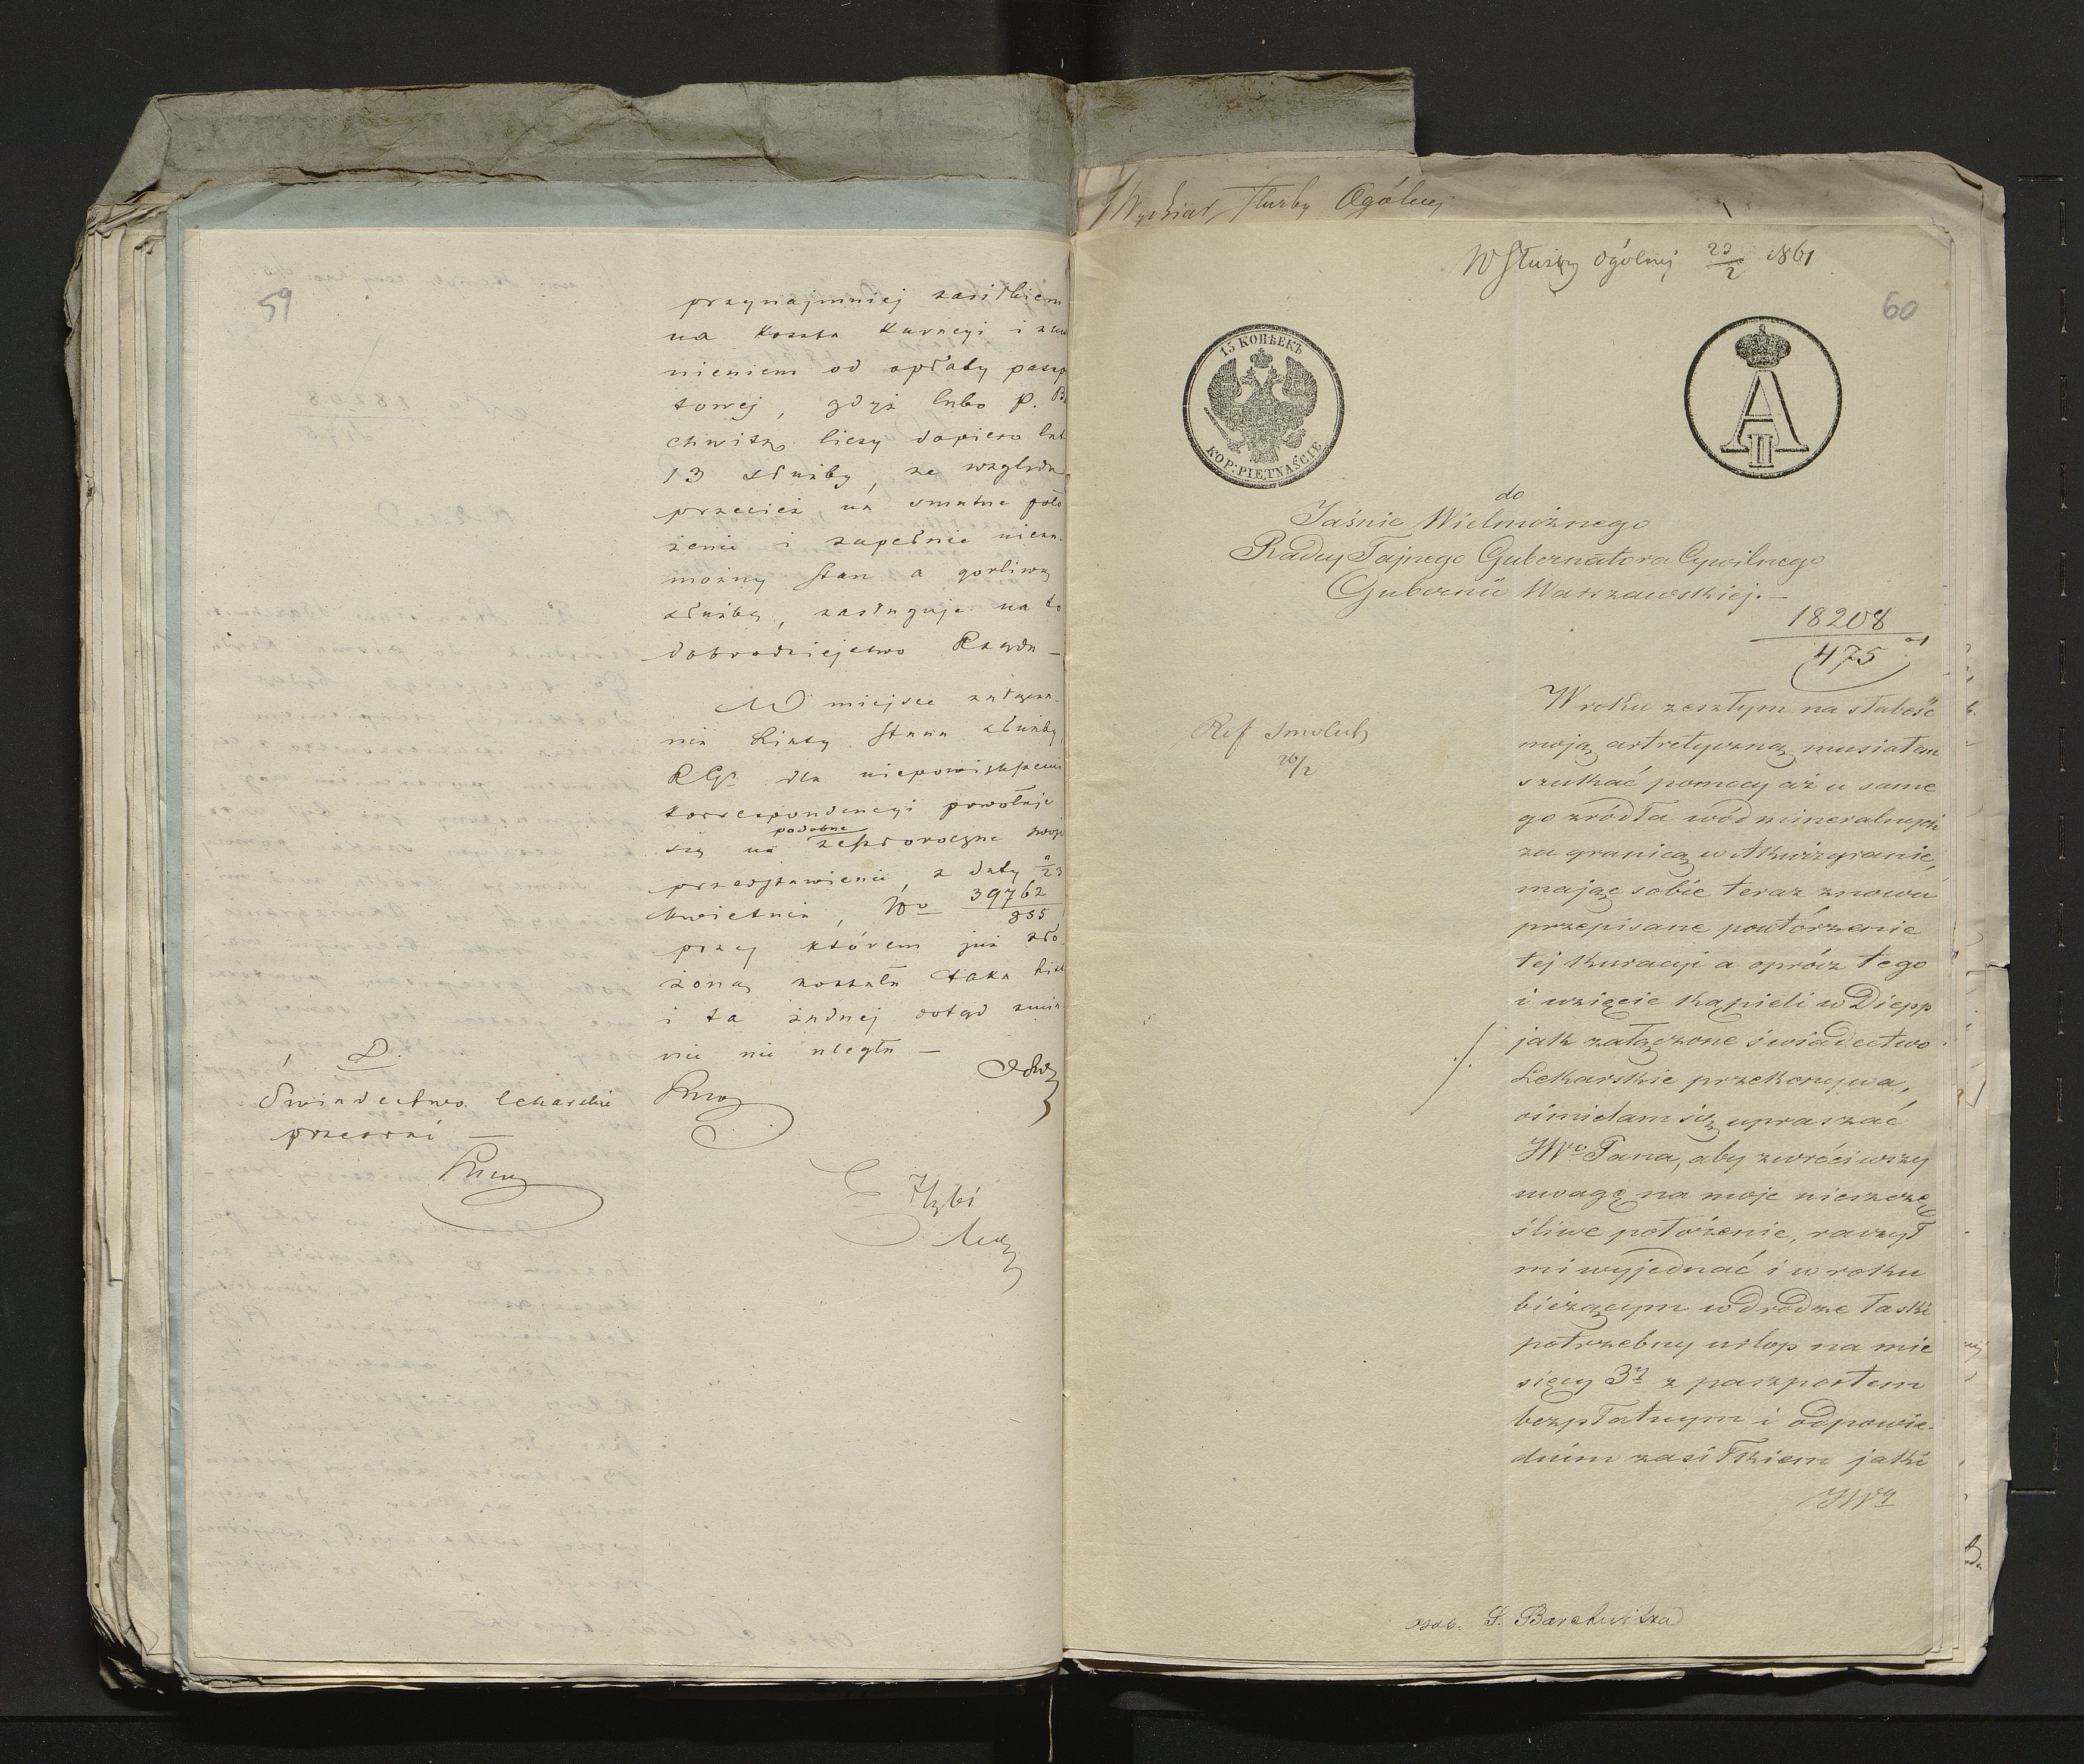 59
przynajmniej zasiłkiem
na koszta kuracyi i
nieniem od opłaty paszp
towej, gdyż lubo P. B
chwitz liczy dopiero lat
13 służby, ze względu
przecież, na smutne poło
żenie i zupełnie nieza-
możny stan a gorliwą
służbę, zasługuje na to
dobrodziejstwo Rządu —
W miejsce załącza-
nia Listy Stanu służby,
RGr dla niepowiększenia
korrespondencyi powołuje
się na podobne zeszłoroczne swoje
przedstawienie, z daty 11/23
kwietnia, No 39762/855
przy którem już zło-
żoną została taka list
i ta żadnej dotąd zmia
nie nie uległa —
D.
Świadectwo lekarskie
przesrać —
Wydział Służby Ogólnej
W Służby Ogólnej 23/2 1861
60
15 КОПѢЕКЪ
KOP: PIĘTNAŚCIE
A II
do
Jaśnie Wielmożnego
Radcy Tajnego Gubernatora Cywilnego
Gubernii Warszawskiej.—
18208
475
Ref Smolub
26/2
W roku zeszłym na słabość
moją artretyczną musiałem
szukać pomocy aż u same
go zródła wód mineralnych
za granicą w Akwizgranie,
mając sobie teraz znowu
przepisane powtórzenie
tej kuracji a oprócz tego
i wzięcie kąpieli w Diepp
jak załączone świadectwo
Lekarskie przekonywa,
ośmielam się upraszać
JWo Pana, aby zwróciwszy
uwagę na moje nieszczę
śliwe położenie, raczył
mi wyjednać i w roku
bieżącym w drodze łaski
potrzebny urlop na mie
sięcy 3y z paszportem
bezpłatnym i odpowie-
dnim zasiłkiem jaki
JWy
S. Barchwitza